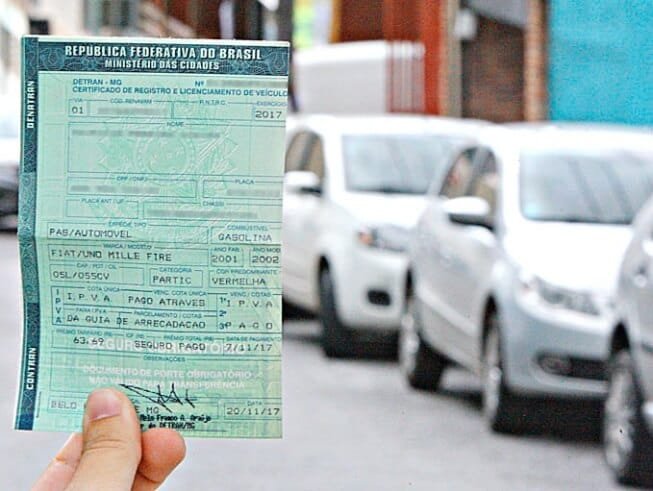 REPÚBLICA FEDERATIVA DO BRASIL
MINISTÉRIO DAS CIDADES
DENATRAN
CONTRAN
DETRAN - MG Nº
CERTIFICADO DE REGISTRO E LICENCIAMENTO DE VEÍCULO
VIA CÓD. RENAVAM R.N.T.R.C. EXERCÍCIO
01 2017
NOME
CPF / CNPJ PLACA
PLACA ANT / UF CHASSI
ESPÉCIE TIPO COMBUSTÍVEL
PAS/AUTOMOVEL GASOLINA
MARCA / MODELO ANO FAB. ANO MOD.
FIAT/UNO MILLE FIRE 2001 2002
CAP / POT / CIL CATEGORIA COR PREDOMINANTE
05L/055CV PARTIC VERMELHA
IPVA
COTA ÚNICA VENC. COTA ÚNICA VENC. / COTAS
I.P.V.A PAGO ATRAVES 1ª I.P.V.A
PARCELAMENTO / COTAS 2ª
DA GUIA DE ARRECADACAO 3ª P A G O
PRÊMIO TARIFÁRIO PRÊMIO TOTAL DATA DE PAGAMENTO
63,69 SEGURO PAGO 7/11/17
OBSERVAÇÕES
DOCUMENTO DE PORTE OBRIGATÓRIO
NÃO VÁLIDO PARA TRANSFERÊNCIA
BELO MG DATA
20/11/17
Melo Franco A. Araújo
do DETRAN/MG